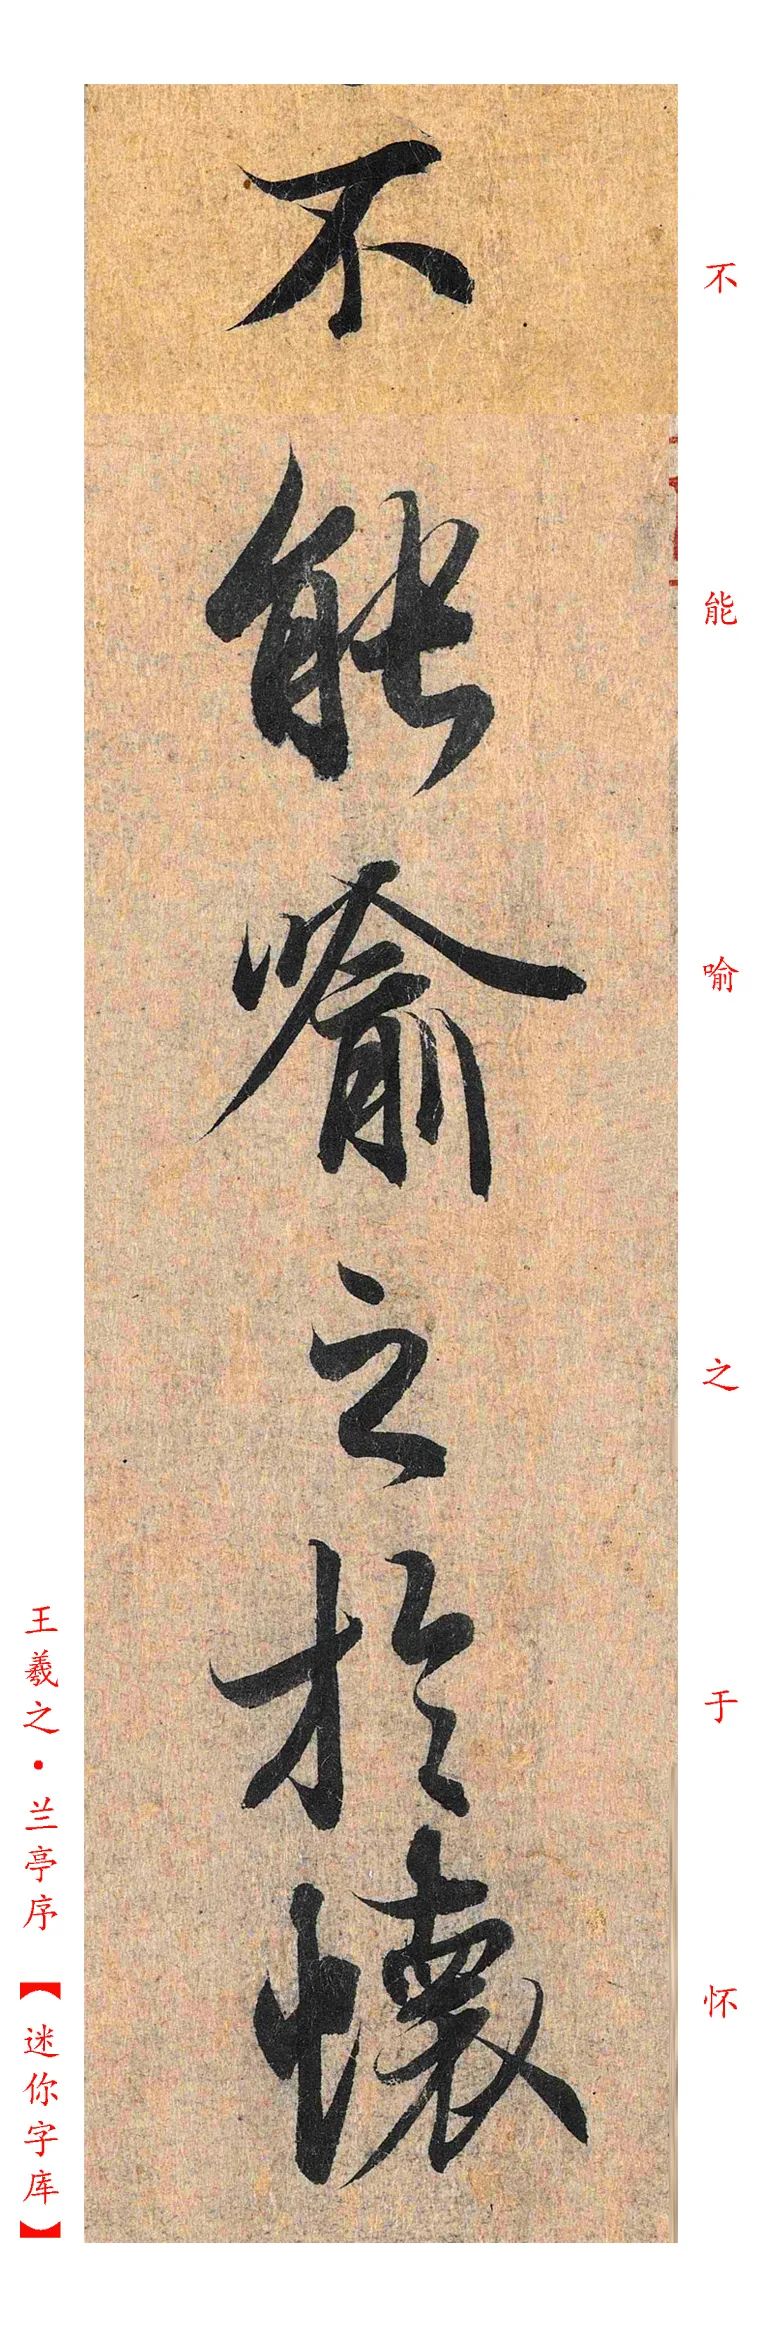 不能喻之於懷
不能喻之于怀
王羲之·兰亭序【迷你字库】